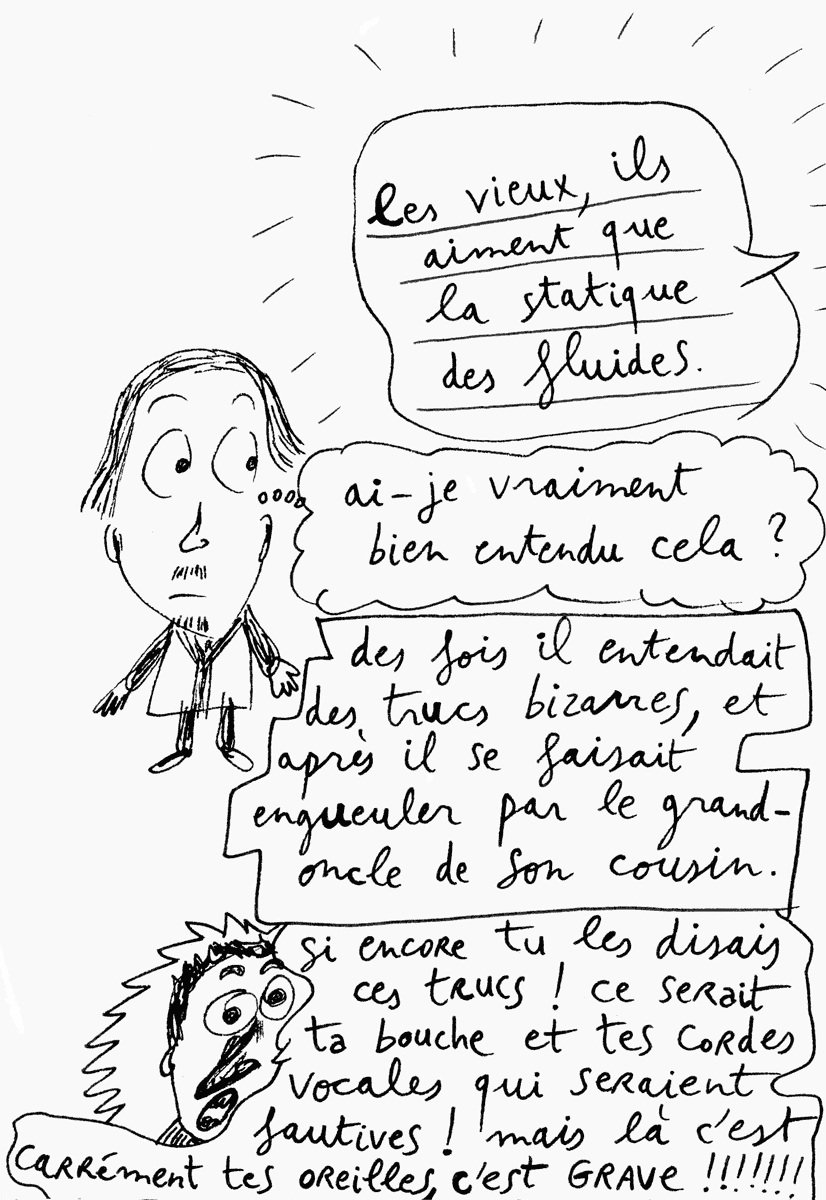 les vieux, ils
aiment que
la statique
des fluides.
ai-je vraiment
bien entendu cela ?
des fois il entendait
des trucs bizarres, et
après il se faisait
engueuler par le grand-
oncle de son cousin.
si encore tu les disais
ces trucs ! ce serait
ta bouche et tes cordes
vocales qui seraient
fautives ! mais là c'est
carrément tes oreilles, c'est GRAVE !!!!!!!